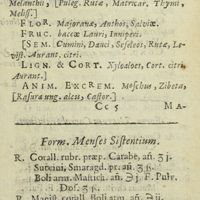 Melanthii, [Puleg. Rutæ, Matricar. Thymi,
Meliss.]
FLOR. Majoranæ, Anthor, Salviæ.
FRUC. baccæ Lauri, Juniperi.
[SEM. Cumini, Dauci, Seseleos, Rutæ, Le-
vist. Aurant. citri.
LIGN. & CORT. Xyloaloes, Cort. citri
Aurant.]
ANIM. EXCREM. Moschus, Zibeta,
[Rasura ung. alcis, Castor.]
Cc 5 MA-
Form. Menses Sistentium.
R. Corall. rubr. præp. Carabe, añ. ʒ j.
Succini, Smaragd. pr. añ. ʒ ß.
Bol. arm. Mastich. añ. ℈ j. F. Pulv.
Dos. ʒ ß.
corall. Bol. arm. añ. ʒ ij.